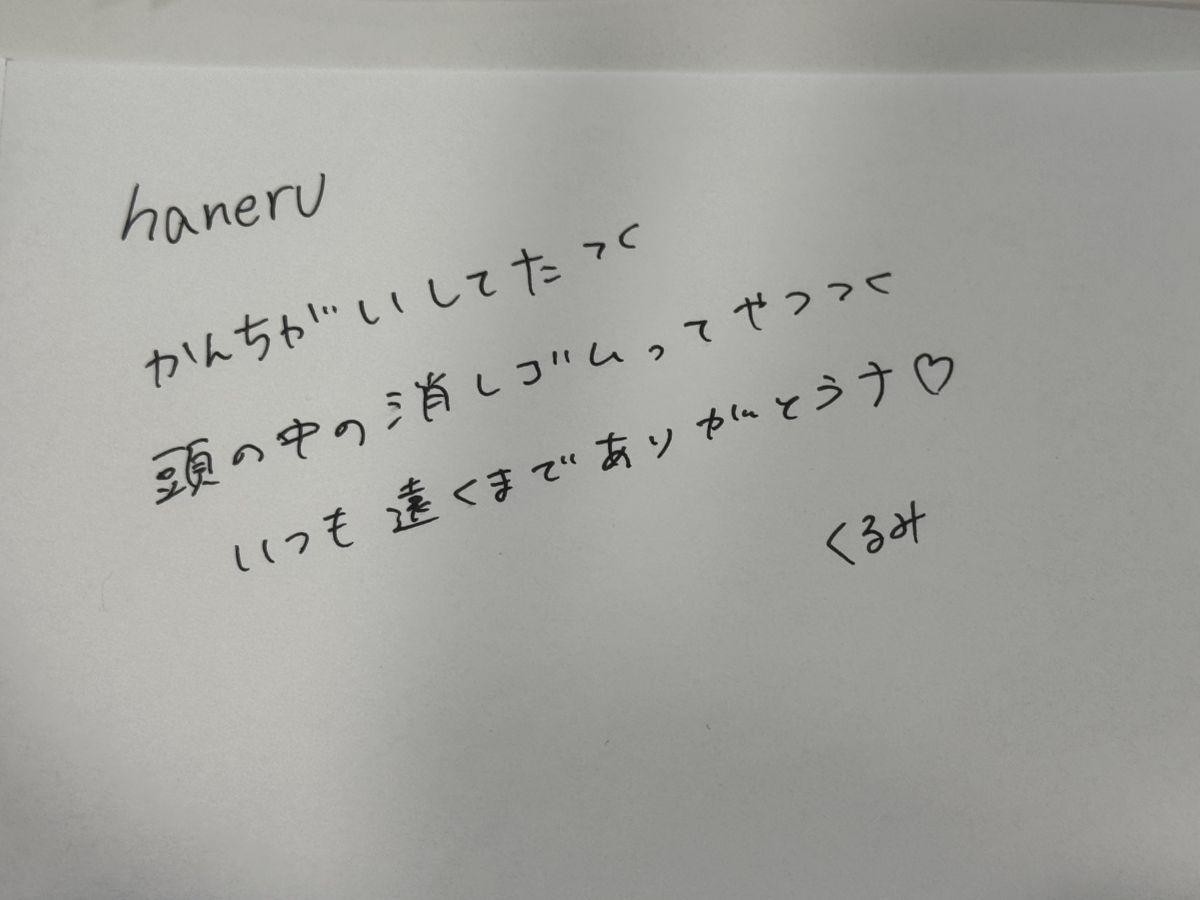 haneru
かんちがいしてたっく
頭の中の消しゴムってやつっく
いつも遠くまでありがとうナ♡
くるみ